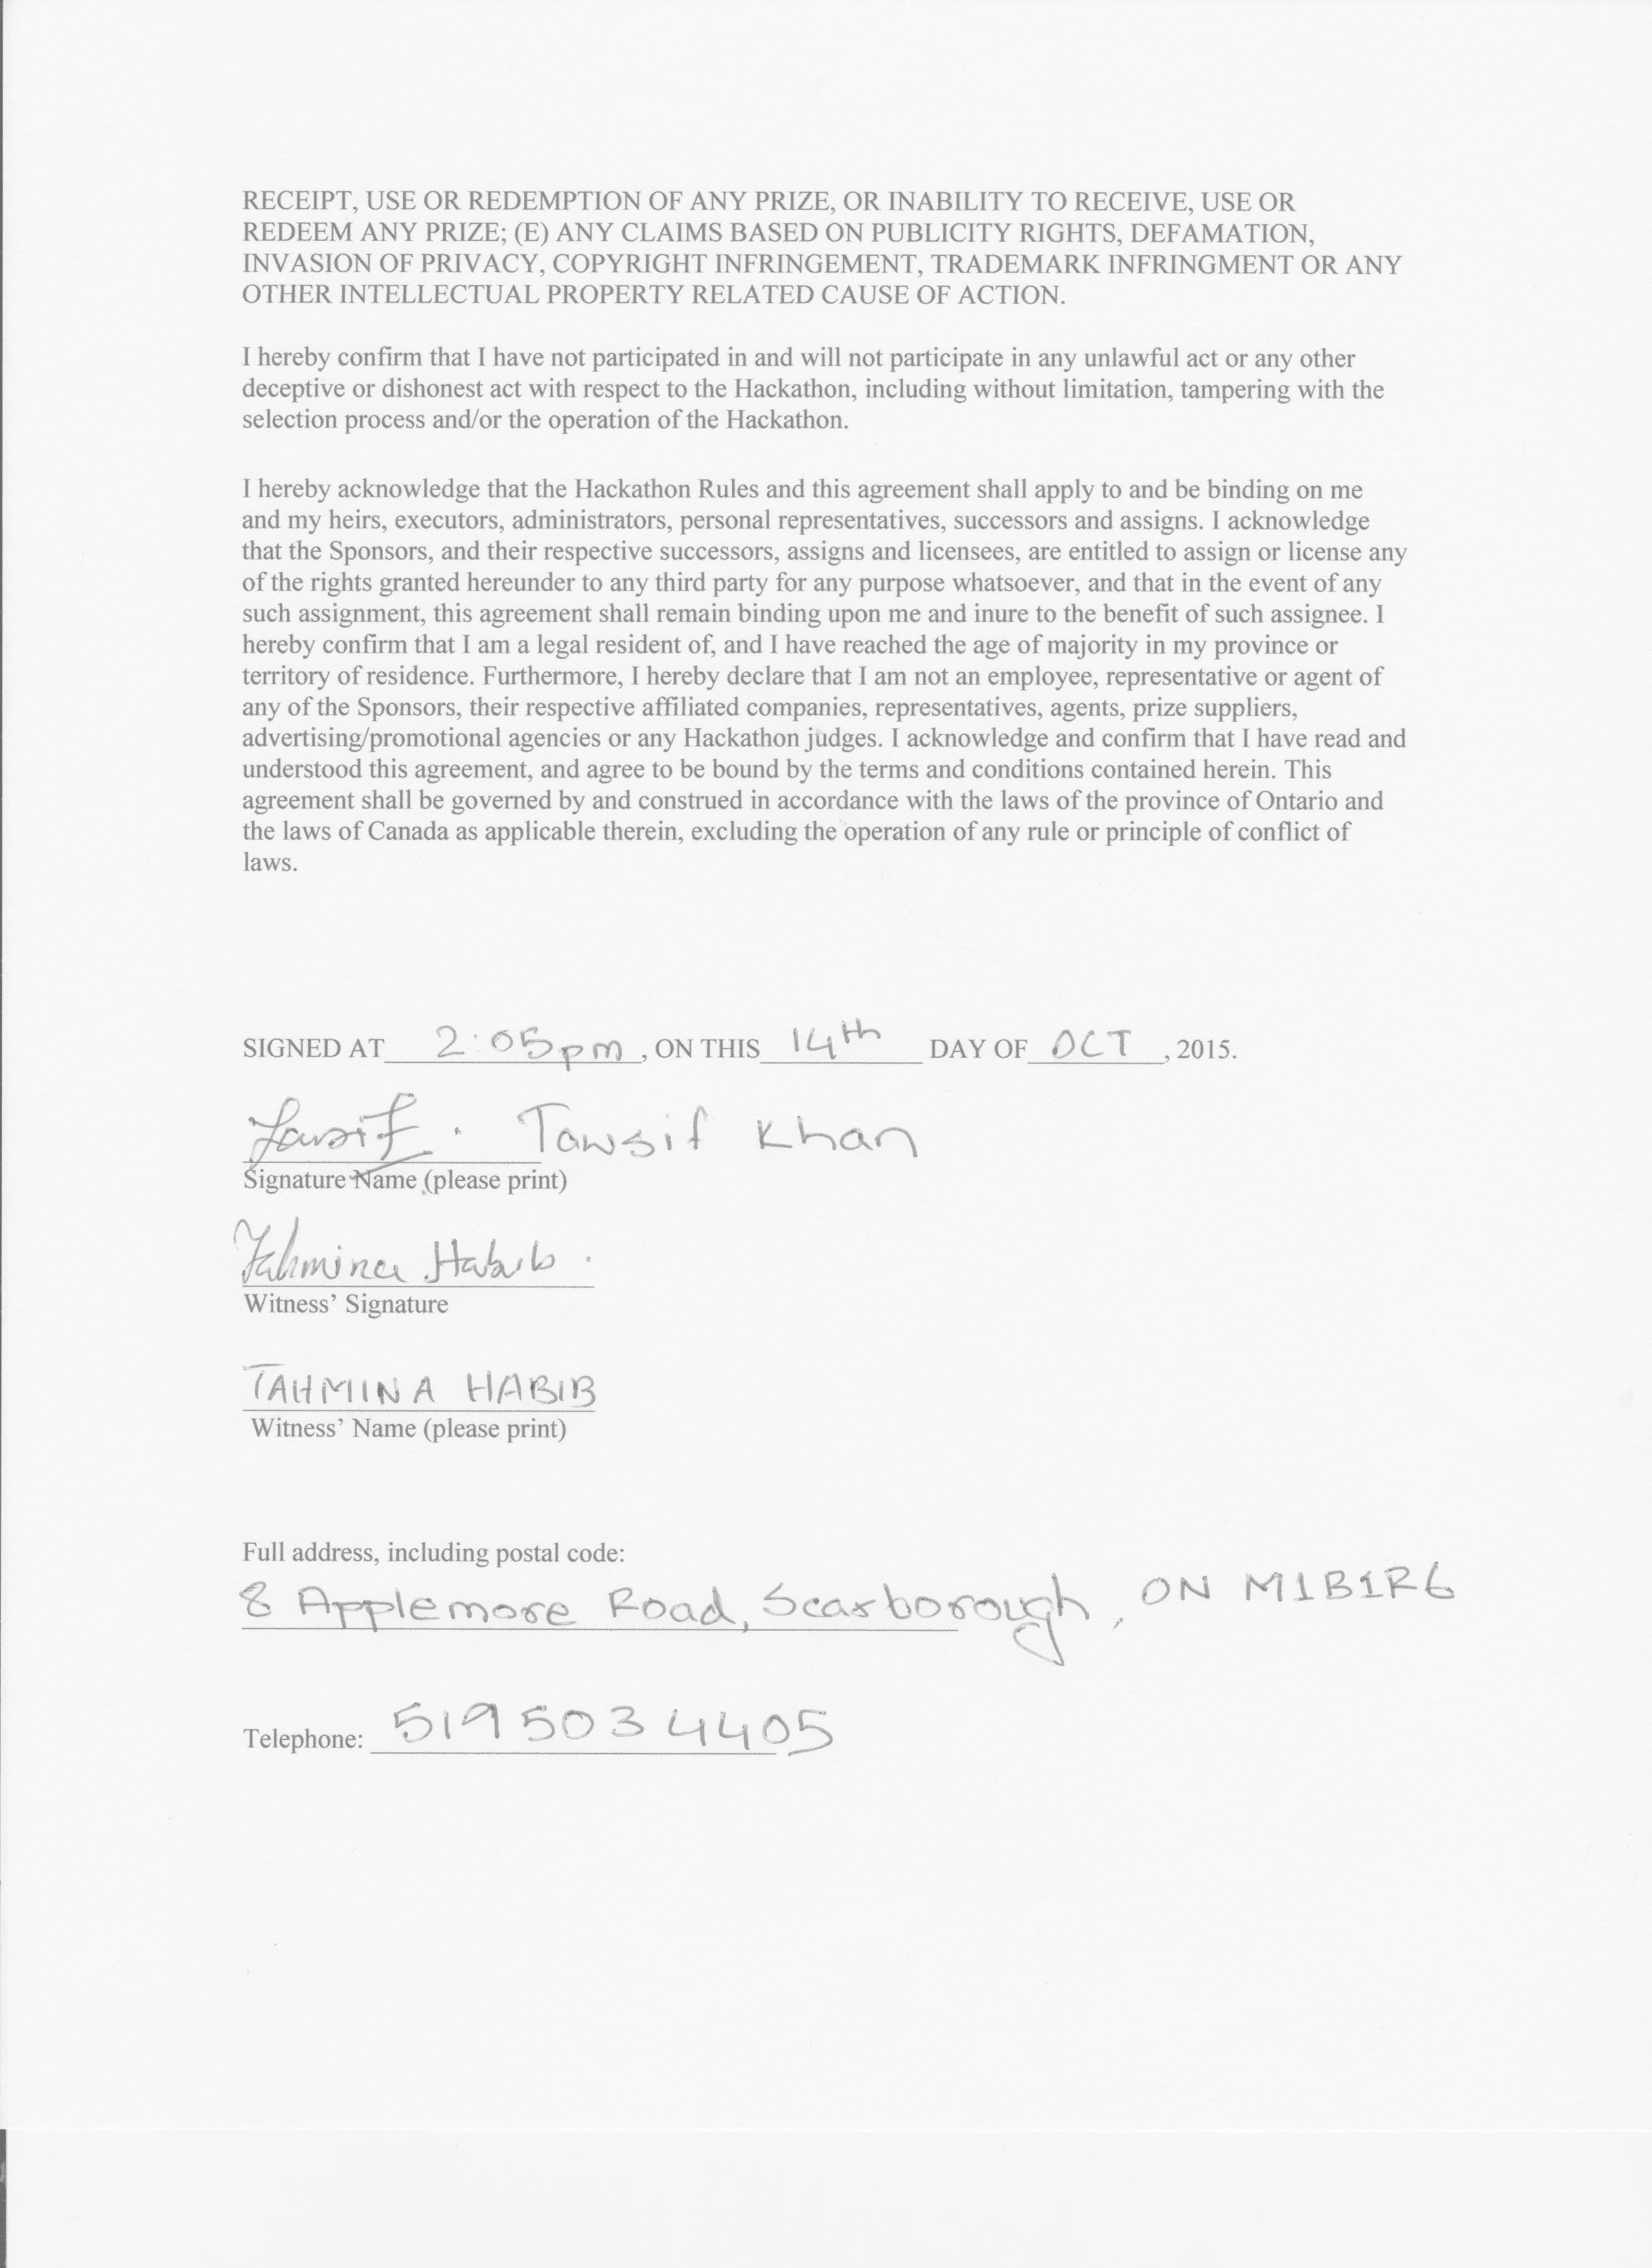 RECEIPT, USE OR REDEMPTION OF ANY PRIZE, OR INABILITY TO RECEIVE, USE OR
REDEEM ANY PRIZE; (E) ANY CLAIMS BASED ON PUBLICITY RIGHTS, DEFAMATION,
INVASION OF PRIVACY, COPYRIGHT INFRINGEMENT, TRADEMARK INFRINGMENT OR ANY
OTHER INTELLECTUAL PROPERTY RELATED CAUSE OF ACTION.
I hereby confirm that I have not participated in and will not participate in any unlawful act or any other
deceptive or dishonest act with respect to the Hackathon, including without limitation, tampering with the
selection process and/or the operation of the Hackathon.
I hereby acknowledge that the Hackathon Rules and this agreement shall apply to and be binding on me
and my heirs, executors, administrators, personal representatives, successors and assigns. I acknowledge
that the Sponsors, and their respective successors, assigns and licensees, are entitled to assign or license any
of the rights granted hereunder to any third party for any purpose whatsoever, and that in the event of any
such assignment, this agreement shall remain binding upon me and inure to the benefit of such assignee. I
hereby confirm that I am a legal resident of, and I have reached the age of majority in my province or
territory of residence. Furthermore, I hereby declare that I am not an employee, representative or agent of
any of the Sponsors, their respective affiliated companies, representatives, agents, prize suppliers,
advertising/promotional agencies or any Hackathon judges. I acknowledge and confirm that I have read and
understood this agreement, and agree to be bound by the terms and conditions contained herein. This
agreement shall be governed by and construed in accordance with the laws of the province of Ontario and
the laws of Canada as applicable therein, excluding the operation of any rule or principle of conflict of
laws.
SIGNED AT 2:05pm, ON THIS 14th DAY OF OCT, 2015.
Tawsif. Tawsif Khan
Signature Name (please print)
Tahmina Habib.
Witness' Signature
TAHMINA HABIB
Witness' Name (please print)
Full address, including postal code:
8 Applemore Road, Scarborough, ON M1B1R6
Telephone: 519 503 4405